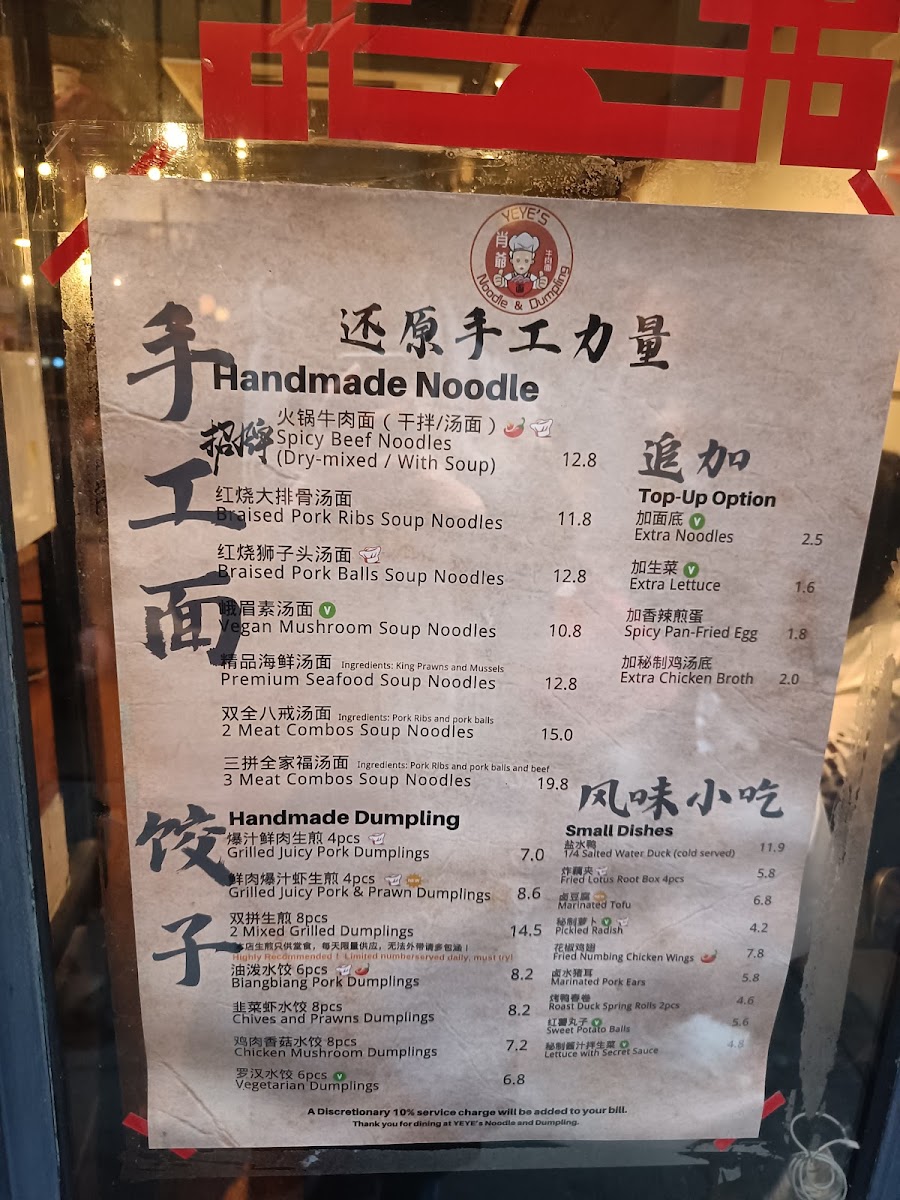 YEYE'S
肖爺
Noodle & Dumpling
还原手工力量
手工面
Handmade Noodle
招牌
火锅牛肉面（干拌/汤面）
Spicy Beef Noodles
(Dry-mixed / With Soup) 12.8
红烧大排骨汤面
Braised Pork Ribs Soup Noodles 11.8
红烧狮子头汤面
Braised Pork Balls Soup Noodles 12.8
峨眉素汤面 V
Vegan Mushroom Soup Noodles 10.8
精品海鲜汤面 Ingredients: King Prawns and Mussels
Premium Seafood Soup Noodles 12.8
双全八戒汤面 Ingredients: Pork Ribs and pork balls
2 Meat Combos Soup Noodles 15.0
三拼全家福汤面 Ingredients: Pork Ribs and pork balls and beef
3 Meat Combos Soup Noodles 19.8
追加
Top-Up Option
加面底 V
Extra Noodles 2.5
加生菜 V
Extra Lettuce 1.6
加香辣煎蛋
Spicy Pan-Fried Egg 1.8
加秘制鸡汤底
Extra Chicken Broth 2.0
饺子
Handmade Dumpling
爆汁鲜肉生煎 4pcs
Grilled Juicy Pork Dumplings 7.0
鲜肉爆汁虾生煎 4pcs NEW
Grilled Juicy Pork & Prawn Dumplings 8.6
双拼生煎 8pcs
2 Mixed Grilled Dumplings 14.5
本店生煎只供堂食，每天限量供应，无法外带请多包涵！
Highly Recommended！ Limited numberserved daily, must try!
油泼水饺 6pcs
Biangbiang Pork Dumplings 8.2
韭菜虾水饺 8pcs
Chives and Prawns Dumplings 8.2
鸡肉香菇水饺 8pcs
Chicken Mushroom Dumplings 7.2
罗汉水饺 6pcs V
Vegetarian Dumplings 6.8
风味小吃
Small Dishes
盐水鸭
1/4 Salted Water Duck (cold served) 11.9
炸藕夹
Fried Lotus Root Box 4pcs 5.8
卤豆腐 NEW
Marinated Tofu 6.8
秘制萝卜 V
Pickled Radish 4.2
花椒鸡翅
Fried Numbing Chicken Wings 7.8
卤水猪耳
Marinated Pork Ears 5.8
烤鸭春卷
Roast Duck Spring Rolls 2pcs 4.6
红薯丸子 V
Sweet Potato Balls 5.6
秘制酱汁拌生菜 V
Lettuce with Secret Sauce 4.8
A Discretionary 10% service charge will be added to your bill.
Thank you for dining at YEYE's Noodle and Dumpling.